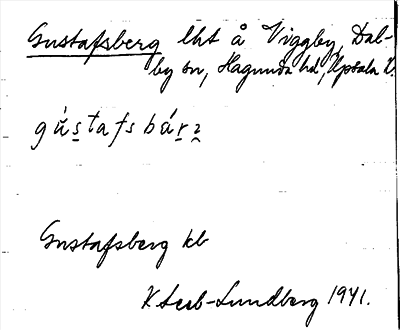 Gustafsberg lht å Viggby, Dal-
by sn, Hagunda hd, Upsala l.
gu̇́s̱tafsbárꝛ
Gustafsberg kb
K Lundberg 1941.